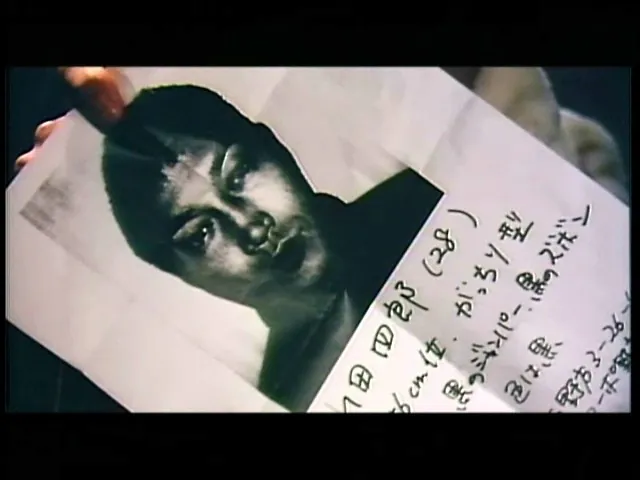 田四郎 (28)
6cm位. がっちり型
黒のジャンパー. 黒のズボン
色は黒
野方3-26-